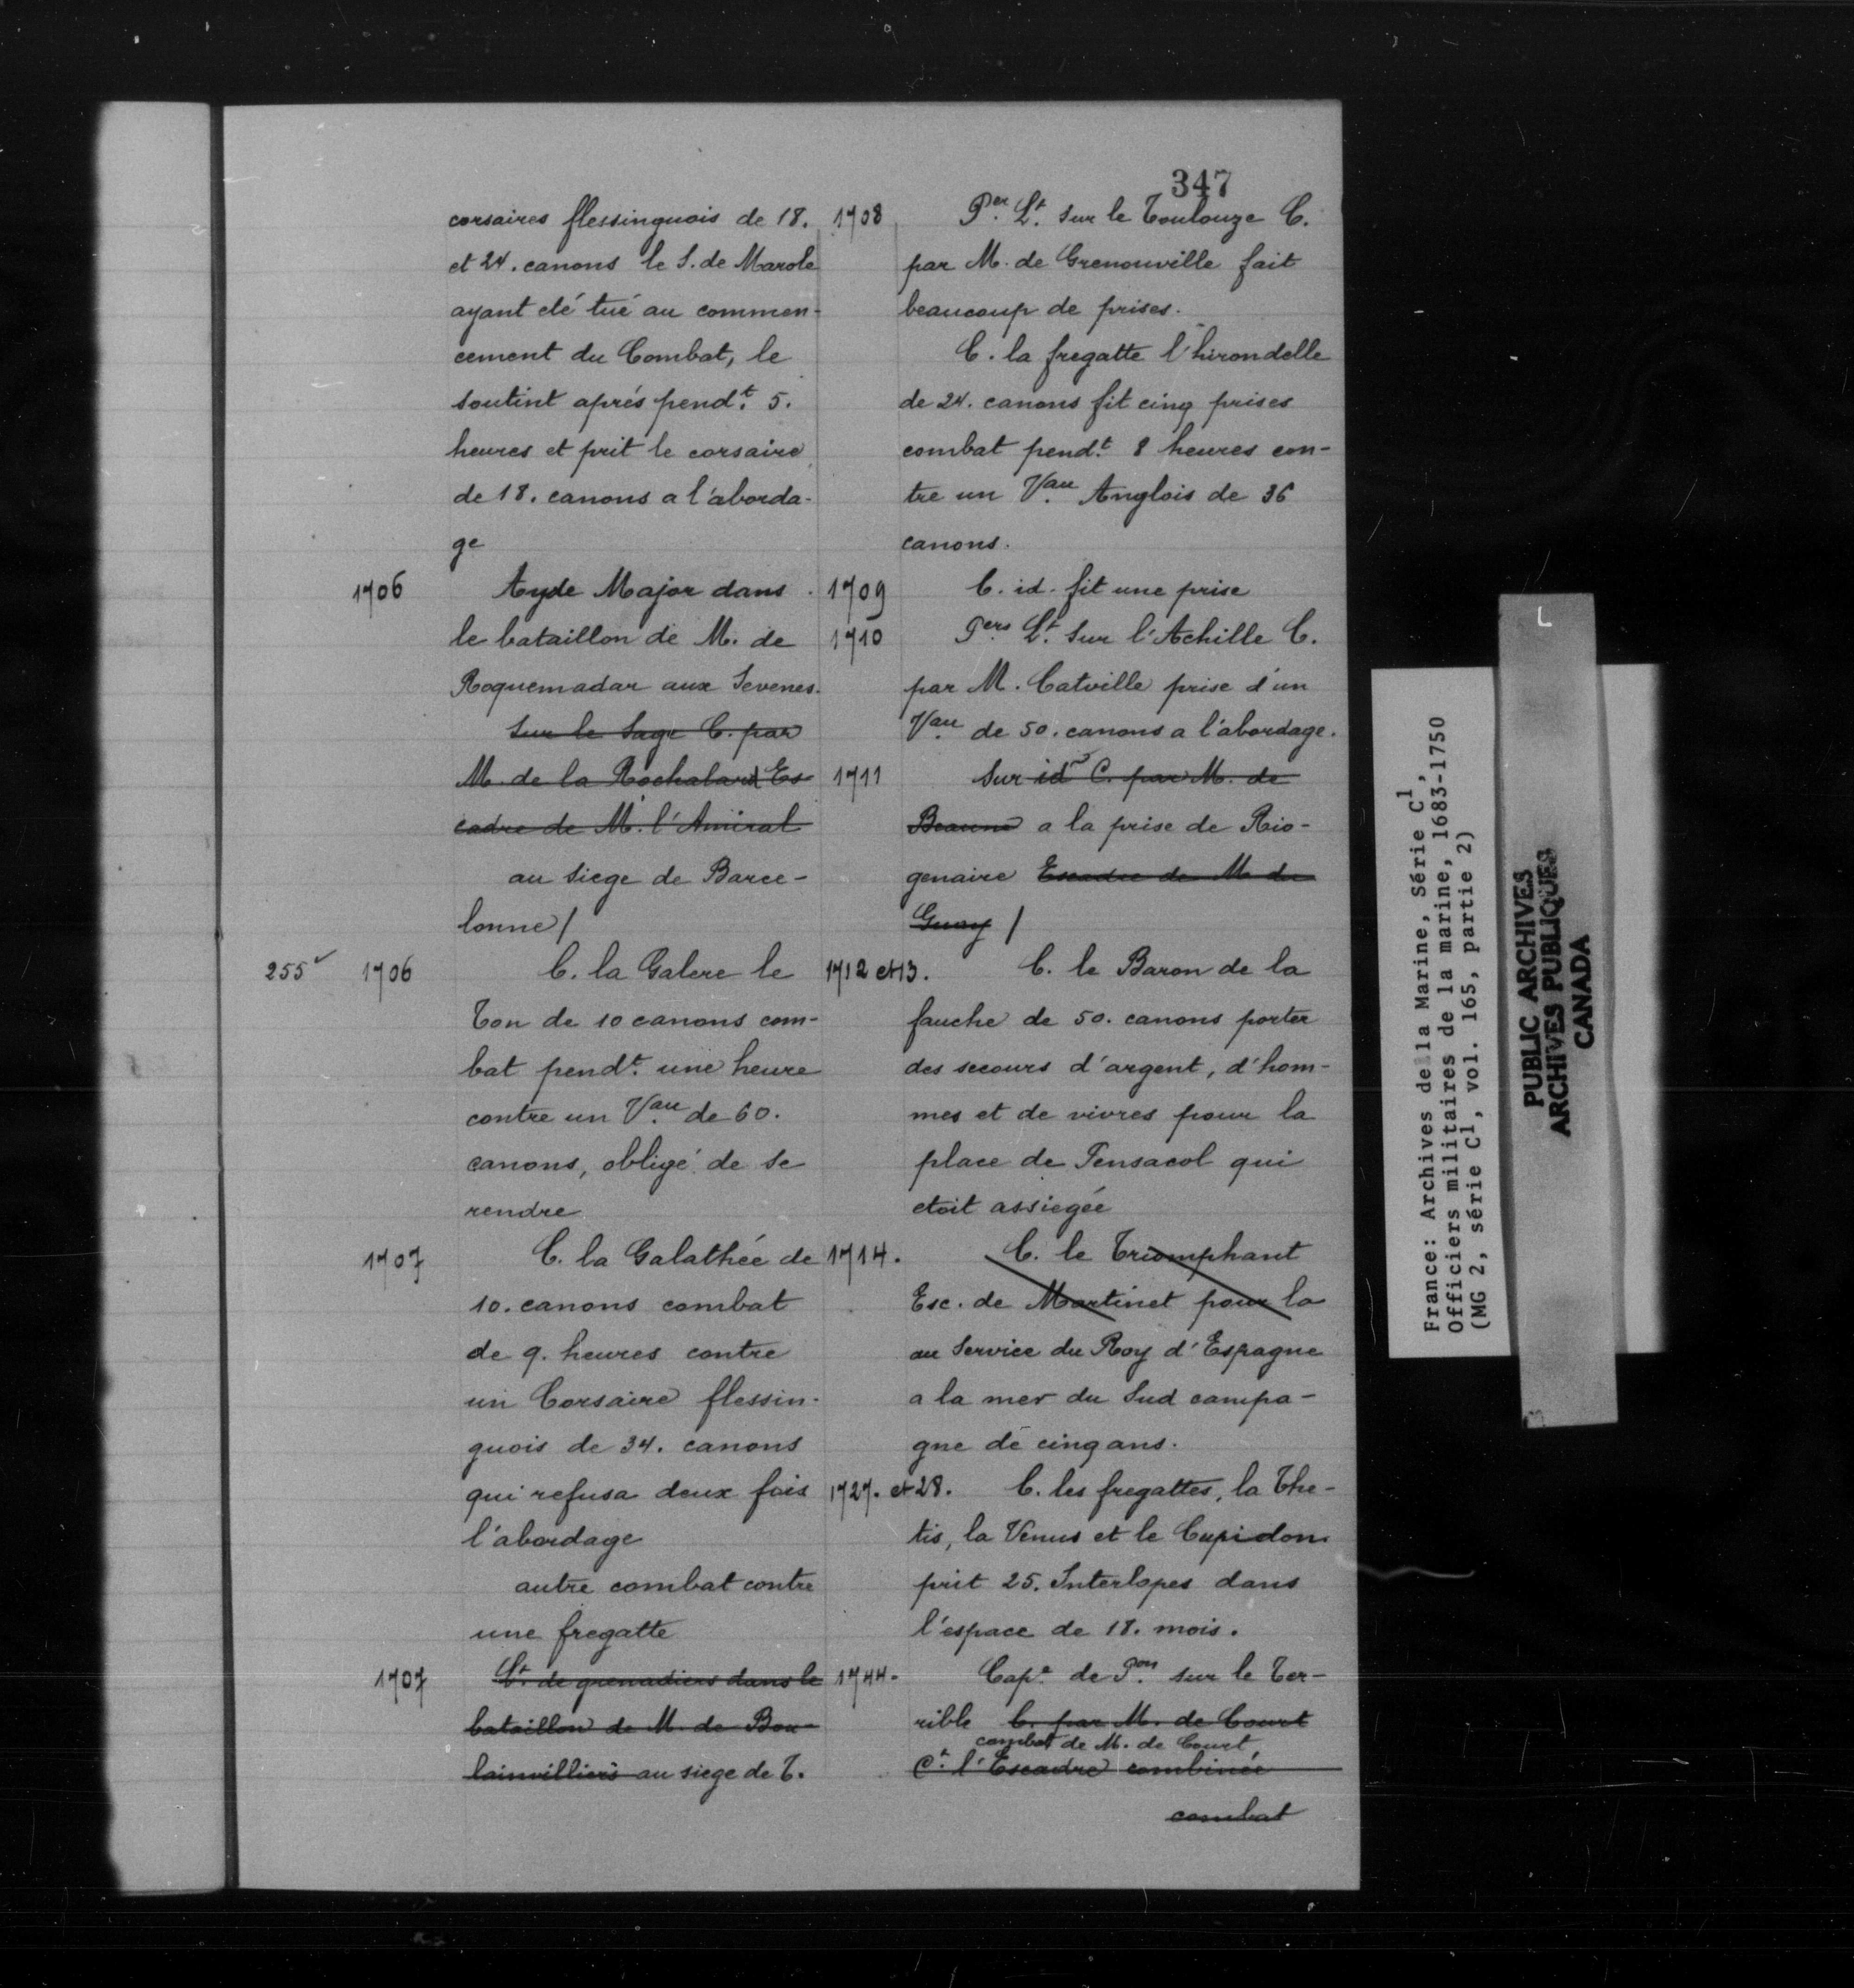 347
corsaires flessinguois de 18.
et 24. canons le S. de Marole
ayant eté tué au commen-
cement du Combat, le
soutint aprés pendt. 5.
heures et prit le corsaire
de 18. canons a l'aborda-
ge
1706 Ayde Major dans
le bataillon de M. de
Roquemadar aux Sevenes.
Sur le Sage C. par
M. de la Rochalard Es-
cadre de M. l'Amiral
au siege de Barce-
lonne/
255v 1706 C. la Galere le
Ton de 10 canons com-
bat pendt. une heure
contre un Vau. de 60.
canons, obligé de se
rendre
1707 C. la Galathée de
10. canons combat
de 9. heures contre
un Corsaire flessin-
guois de 34. canons
qui refusa deux fois
l'abordage
autre combat contre
une fregatte
1707 Lt. de grenadiers dans le
bataillon de M. de Bou-
lainvilliers au siege de T.
1708 Per. Lt. sur le Toulouze C.
par M. de Grenonville fait
beaucoup de prises.
C. la fregatte l'hirondelle
de 24. canons fit cinq prises
combat pendt. 8 heures con-
tre un Vau. Anglois de 36
canons.
1709 C. id. fit une prise
1710 Pers. Lt. sur l'Achille C.
par M. Catville prise d'un
Vau. de 50. canons a l'abordage.
1711 Sur id C. par M. de
Beaune a la prise de Rio-
genaire Escadre de M. du
Guay /
1712 et 13. C. le Baron de la
fauche de 50. canons porter
des secours d'argent, d'hom-
mes et de vivres pour la
place de Pensacol qui
etoit assiegée
1714. C. le Triomphant
Esc. de Martinet pour la
au Service du Roy d'Espagne
a la mer du Sud campa-
gne de cinq ans.
1727. et 28. C. les fregattes, la The-
tis, la Venus et le Cupidon
prit 25. Interlopes dans
l'espace de 18. mois.
1744. Cape. de Pon. sur le Ter-
rible C. par M. de Court
combat de M. de Court,
Ct. l'Escadre combinée
combat
France: Archives de la Marine, Série C1,
Officiers militaires de la marine, 1683-1750
(MG 2, série C1, vol. 165, partie 2)
PUBLIC ARCHIVES
ARCHIVES PUBLIQUES
CANADA